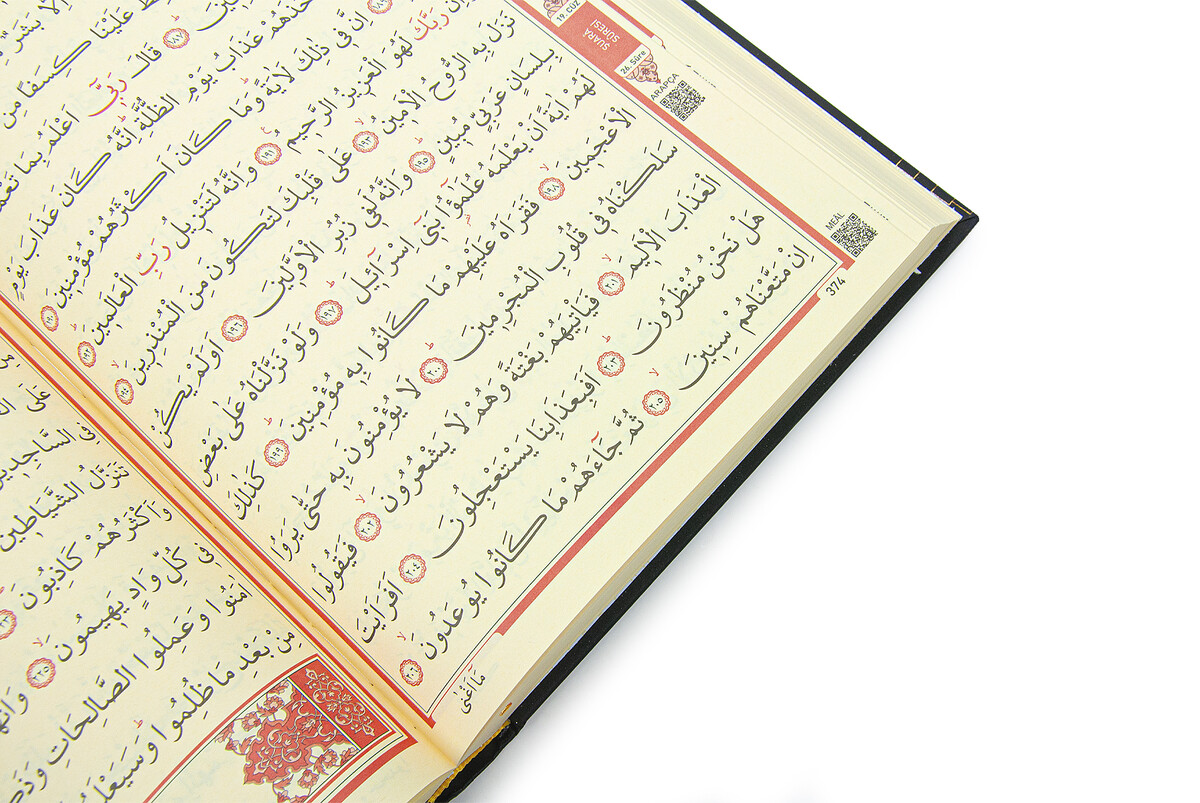 اِلَّا بَشَرٌ
عَلَيْنَا كِسَفًا مِنَ
﴿١٨٧﴾ قَالَ رَبّ۪ٓي اَعْلَمُ بِمَا
عَذَابُ يَوْمِ الظُّلَّةِۜ اِنَّهُ كَانَ عَذَابَ يَوْمٍ
اِنَّ ف۪ي ذٰلِكَ لَاٰيَةًۜ وَمَا كَانَ اَكْثَرُهُمْ مُؤْمِن۪ينَ ﴿١٩٠﴾
رَبَّكَ لَهُوَ الْعَز۪يزُ الرَّح۪يمُ ﴿١٩١﴾ وَاِنَّهُ لَتَنْز۪يلُ رَبِّ الْعَالَم۪ينَ ﴿١٩٢﴾
نَزَلَ بِهِ الرُّوحُ الْاَم۪ينُ ﴿١٩٣﴾ عَلٰى قَلْبِكَ لِتَكُونَ مِنَ الْمُنْذِر۪ينَ ﴿١٩٤﴾
بِلِسَانٍ عَرَبِيٍّ مُب۪ينٍ ﴿١٩٥﴾ وَاِنَّهُ لَف۪ي زُبُرِ الْاَوَّل۪ينَ ﴿١٩٦﴾ اَوَلَمْ يَكُنْ
لَهُمْ اٰيَةً اَنْ يَعْلَمَهُ عُلَمٰٓؤُا بَن۪ٓي اِسْرَٓائ۪لَ ﴿١٩٧﴾ وَلَوْ نَزَّلْنَاهُ عَلٰى بَعْضِ
الْاَعْجَم۪ينَ ﴿١٩٨﴾ فَقَرَاَهُ عَلَيْهِمْ مَا كَانُوا بِه۪ مُؤْمِن۪ينَ ﴿١٩٩﴾ كَذٰلِكَ
سَلَكْنَاهُ ف۪ي قُلُوبِ الْمُجْرِم۪ينَ ﴿٢٠٠﴾ لَا يُؤْمِنُونَ بِه۪ حَتّٰى يَرَوُا
الْعَذَابَ الْاَل۪يمَ ﴿٢٠١﴾ فَيَاْتِيَهُمْ بَغْتَةً وَهُمْ لَا يَشْعُرُونَ ﴿٢٠٢﴾ فَيَقُولُوا
هَلْ نَحْنُ مُنْظَرُونَ ﴿٢٠٣﴾ اَفَبِعَذَابِنَا يَسْتَعْجِلُونَ ﴿٢٠٤﴾ اَفَرَاَيْتَ
اِنْ مَتَّعْنَاهُمْ سِن۪ينَ ﴿٢٠٥﴾ ثُمَّ جَٓاءَهُمْ مَا كَانُوا يُوعَدُونَ ﴿٢٠٦﴾
مَٓا اَغْنٰى
19. CÜZ
ŞUARÂ
SÛRESİ
26. Sûre
ARAPÇA
MEAL
374
فِي السَّاجِد۪ينَ
تَنَزَّلُ الشَّيَاط۪ينُ
وَاَكْثَرُهُمْ كَاذِبُونَ
ف۪ي كُلِّ وَادٍ يَه۪يمُونَ ﴿٢٢٥﴾
اٰمَنُوا وَعَمِلُوا الصَّالِحَاتِ
مِنْ بَعْدِ مَا ظُلِمُوا